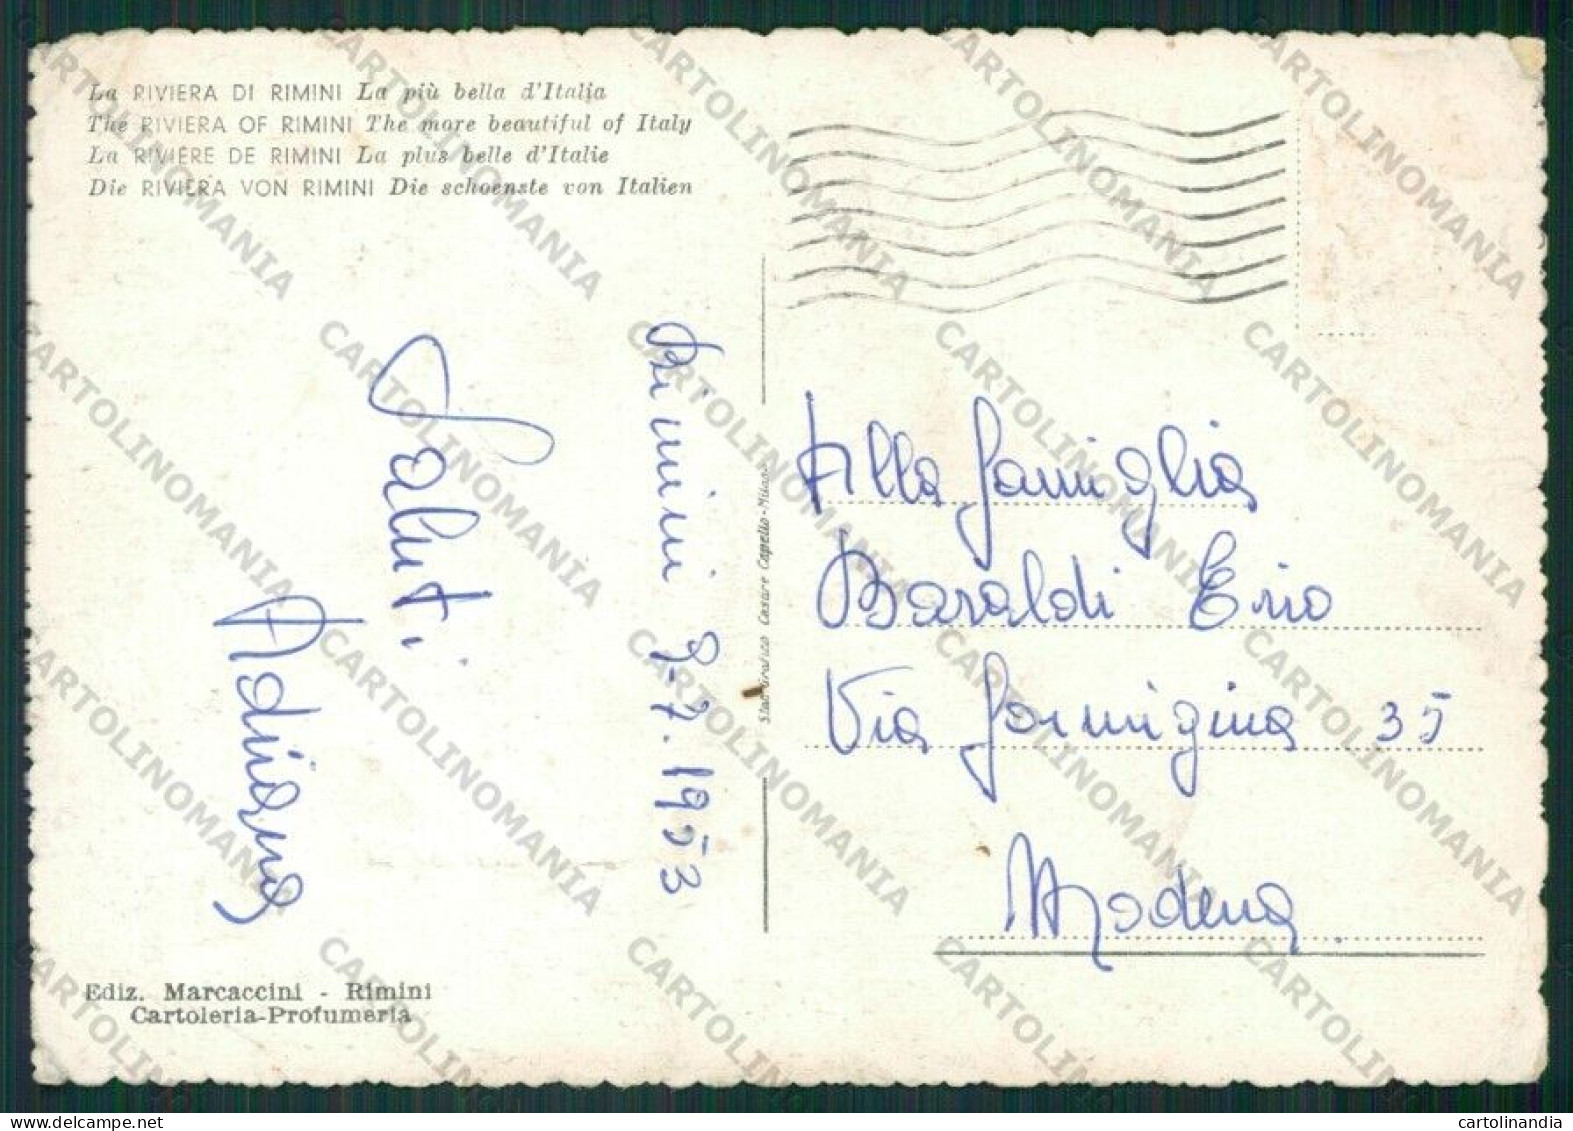 La RIVIERA DI RIMINI La più bella d'Italia
The RIVIERA OF RIMINI The more beautiful of Italy
La RIVIÈRE DE RIMINI La plus belle d'Italie
Die RIVIERA VON RIMINI Die schoenste von Italien
Rimini 9-7.1953
Saluti
Adriana
Stab. Grafico Cesare Capello-Milano
Alla famiglia
Baraldi Erio
Via formigina 35
Modena
Ediz. Marcaccini - Rimini
Cartoleria-Profumeria
CARTOLINOMANIA
www.delcampe.net
cartolinandia